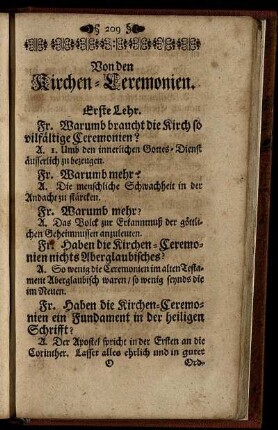 209
Von den
Kirchen-Ceremonien.
Erste Lehr.
Fr. Warumb braucht die Kirch so
vilfältige Ceremonien?
A. 1. Umb den innerlichen Gottes-Dienst
äusserlich zu bezeugen.
Fr. Warumb mehr?
A. Die menschliche Schwachheit in der
Andacht zu stärcken.
Fr. Warumb mehr?
A. Das Volck zur Erkanntnuß der göttli-
chen Geheimnussen anzuleiten.
Fr. Haben die Kirchen-Ceremo-
nien nichts Aberglaubisches?
A. So wenig die Ceremonien im alten Testa-
ment Aberglaubisch waren / so wenig seynds die
im Neuen.
Fr. Haben die Kirchen-Ceremo-
nien ein Fundament in der heiligen
Schrifft?
A. Der Apostel spricht in der Ersten an die
Corinther. Lasset alles ehrlich und in guter
O Ord-